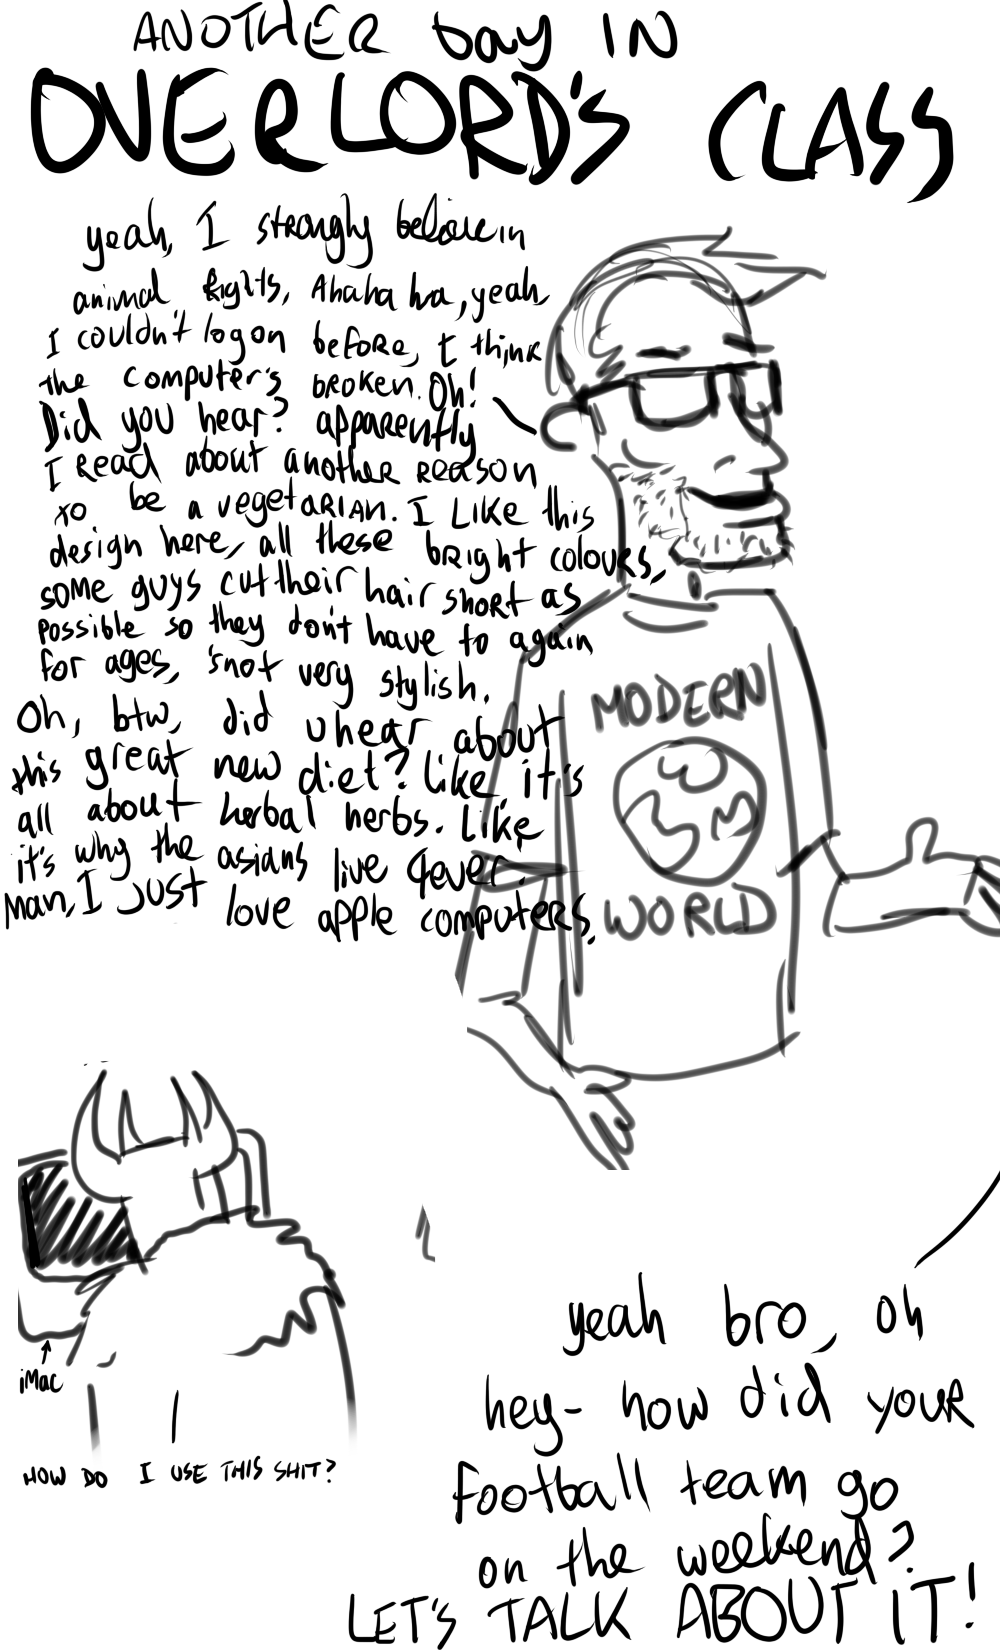 ANOTHER DAY IN
OVERLORD'S CLASS
yeah, I strongly believe in
animal Rights, Ahaha ha, yeah,
I couldn't log on before, I think
the computer's broken. Oh!
Did you hear? apparently
I Read about another reason
to be a vegetarian. I Like this
design here, all these bright colours,
some guys cut their hair short as
possible so they don't have to again
for ages, 'snot very stylish.
Oh, btw, did u hear about
this great new diet? like, it's
all about herbal herbs. Like
it's why the asians live 4ever.
Man, I JUST love apple computers.
MODERN
WORLD
iMac
HOW DO I USE THIS SHIT?
yeah bro, oh
hey- how did your
Football team go
on the weekend?
LET'S TALK ABOUT IT!